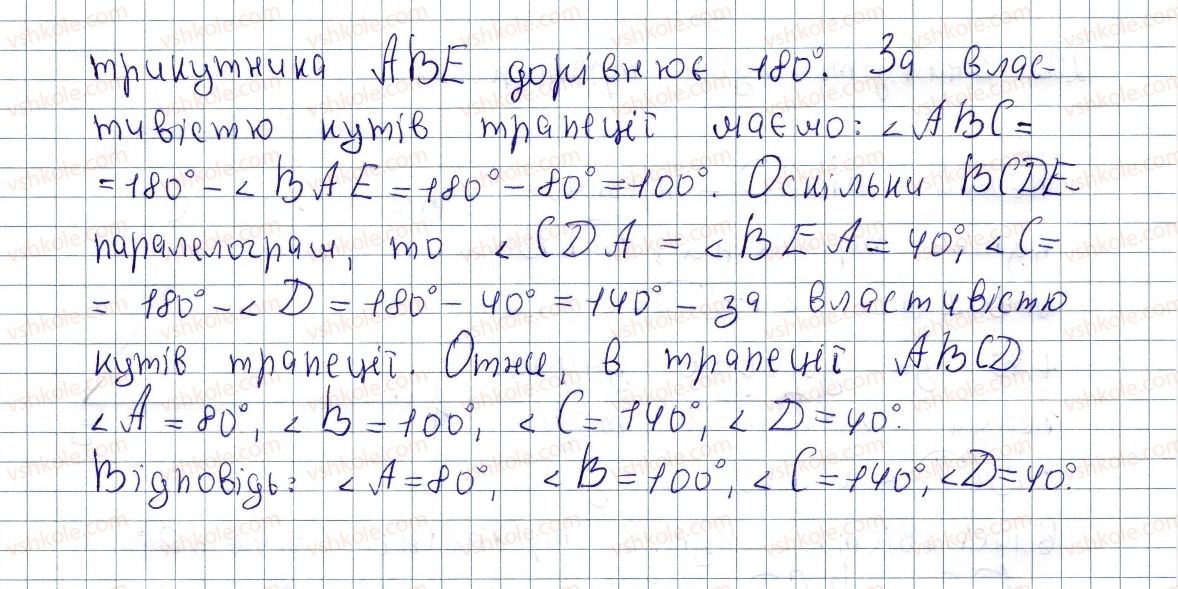 трикутника ABE дорівнює 180°. За влас-
тивістю кутів трапеції маємо: ∠ABC =
= 180° - ∠BAE = 180° - 80° = 100°. Оскільки BCDE-
паралелограм, то ∠CDA = ∠BEA = 40°, ∠C =
= 180° - ∠D = 180° - 40° = 140° - за властивістю
кутів трапеції. Отже, в трапеції ABCD
∠A = 80°, ∠B = 100°, ∠C = 140°, ∠D = 40°.
Відповідь: ∠A = 80°, ∠B = 100°, ∠C = 140°, ∠D = 40°.